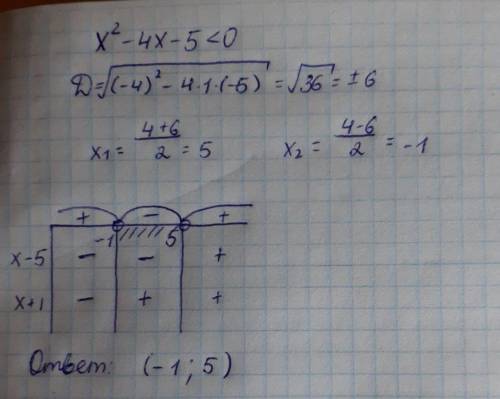 x² - 4x - 5 < 0
D = √((-4)² - 4·1·(-5)) = √36 = ±6
x₁ = (4+6)/2 = 5 x₂ = (4-6)/2 = -1
+ - +
-1 5
x-5 - - +
x+1 - + +
Ответ: (-1; 5)